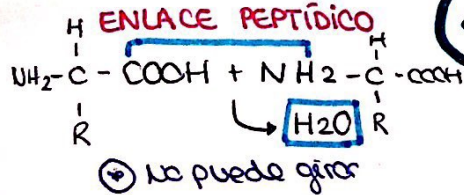 ENLACE PEPTÍDICO
H H
NH2-C-COOH + NH2-C-COOH
R H2O R
* No puede girar